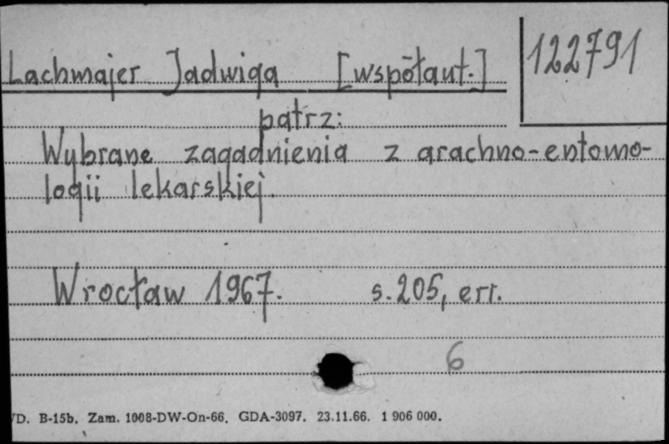 Lachmajer Jadwiga [współaut.]
122791
patrz:
Wybrane zagadnienia z arachno-entomo-
logii lekarskiej.
Wrocław 1967. s. 205, err.
6
D. B-15b. Zam. 1008-DW-On-66. GDA-3097. 23.11.66. 1 906 000.